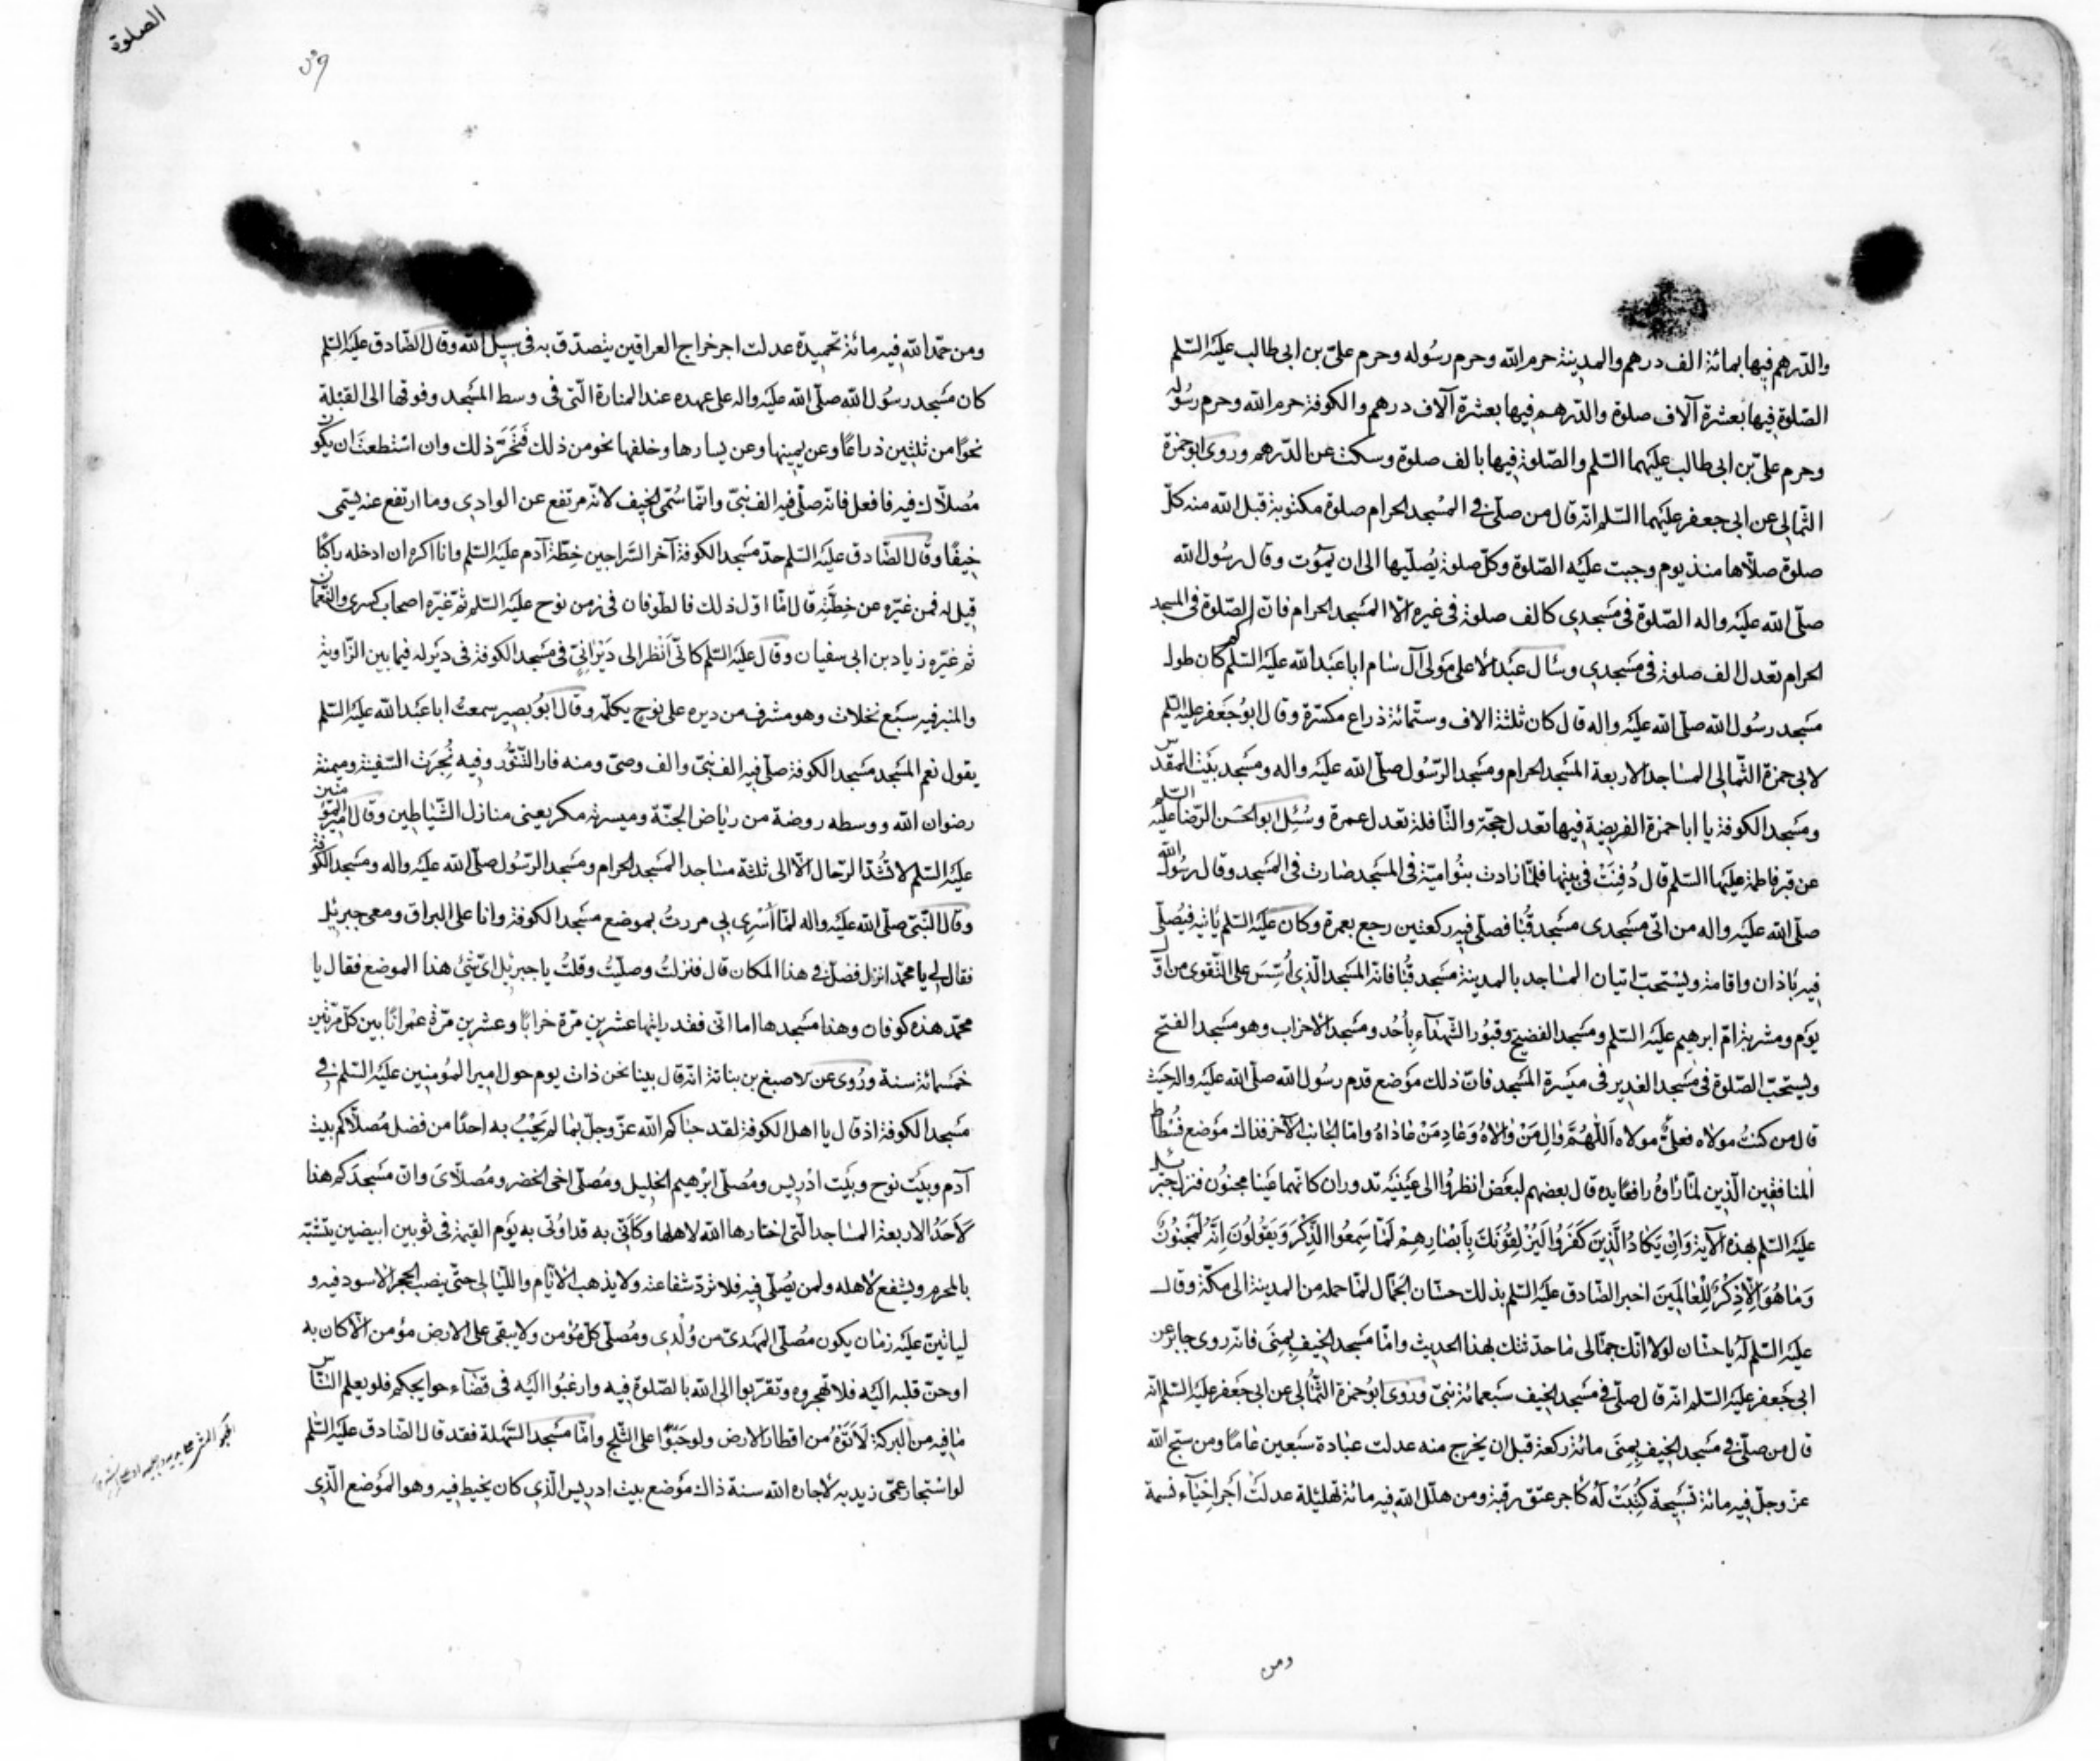 والدّرهم فيها بمائة الف درهم والمدينة حرم الله وحرم رسُوله وحرم علىّ بن ابى طالب عليَه السّلم
الصّلوة فيها بعشرة آلاف صلوة والدّرهم فيها بعشرة آلاف درهم والكوفة حرم الله وحرم رسُوله
وحرم علىّ بن ابى طالب عليَهما السّلم والصّلوة فيها بالف صلوة وسكت عن الدّرهم وروى ابوحمزة
الثّمالى عن ابى جعفر عليَهما السّلم انّه قال من صلّى فى المسْجد الحرام صلوة مكتوبة قبل الله منه كلّ
صلوة صلّاها منذ يوم وجبت عليَه الصّلوة وكلّ صلوة يُصلّيها الى ان يمَوُت وقال رسُول الله
صلّى الله عليَه واله الصّلوة فى مسَجدى كالف صلوة فى غيره الّا المسَجد الحرام فانّ الصّلوة فى المسجد
الحرام تعَدل الف صلوة فى مسَجدى وسَأل عبَد الاعلى موَلى آل سَام ابا عبَد الله عليَه السّلم كم كان طول
مسَجد رسُول الله صلّى الله عليَه واله قال كان ثلثة الاف وستّمائة ذراع مكسّرة وقال ابوُ جعَفر عليَه السّلم
لابى حمزة الثّمالى المسَاجد الاربعة المسَجد الحرام ومسَجد الرّسُول صلّى الله عليَه واله ومسَجد بيَت المقدّس
ومسَجد الكوفة يا ابا حمزة الفريضة فيها تعَدل حجّة والنّافلة تعَدل عمرة وسُئِل ابوالحسَن الرّضا عليَه السّلم
عن قبر فاطمة عليَها السّلم قال دُفِنَتْ فى بيتها فلمّا زادت بنوُاميّة فى المسَجد صَارت فى المسَجد وقال رسُول الله
صلّى الله عليَه واله من اتى مسَجدى مسَجد قُبَا فصلّى فيه ركعتين رجع بعمرة وكان عليَه السّلم يَأتيه فيصُلّى
فيه بأذان واقامة ويسَتحبّ اتيان المسَاجد بالمدينة مسَجد قُبَا فانّه المسَجد الّذى اُسِّسَ على التّقوى من اوّل
يوَم ومشربة امّ ابرهيم عليَه السّلم ومسَجد الفضيخ وقبوُر الشّهدَآء بِاُحُد ومسَجد الاحزاب وهو مسَجد الفتح
ويسَتحبّ الصّلوة فى مسَجد الغدير فى ميَسرة المسَجد فانّ ذلك موَضع قدم رسُول الله صلّى الله عليَه واله حيَث
قال من كنتُ موَلاه فعلىٌّ مولاه اَللّهُمَّ وَالِ مَنْ وَالاهُ وَعَادِ مَنْ عَادَاهُ وامّا الجَانب الآخر فذاك موَضع فسُطاط
المنافقين الّذين لمّا رَاوهُ رافعًا يده قال بعضهم لبعَض انظروُا الى عيَنيَه تدوران كانّهما عيَنا مجنوُن فنزل جبَرئيل
عليَه السّلم بهذه الآية وَاِنْ يَكَادُ الَّذينَ كَفَرُوا لَيُزْلِقُونَكَ بِاَبْصَارِهِمْ لَمَّا سَمِعُوا الذِّكْرَ وَيَقُولُونَ اِنَّهُ لَمَجْنُونٌ
وَمَا هُوَ اِلّا ذِكْرٌ لِلْعَالَمينَ اخبر الصَّادق عليَه السّلم بذلك حسَّان الجمّال لمّا حمله من المدينة الى مكّة وقال
عليَه السّلم لَهُ يا حسَّان لولا انّك جمّالى مَا حدّثتك بهذا الحديث وامّا مسَجد الخيف بِمِنَى فانّه روى جابر عن
ابى جعَفر عليَه السّلم انّه قال صلّى فى مسَجد الخيف سَبعمائة نبىّ ورَوى ابوُ حمزة الثُّمالى عن ابى جَعفر عليَه السّلم انّه
قال من صلّى فى مسَجد الخيف بِمِنَى مائة ركعة قبل ان يخرج منه عدلت عبَادة سبَعين عَامًا ومن سبّح الله
عزّ وجلّ فيه مائة تسَبيحة كُتِبَتْ لَهُ كأجر عتق رقبة ومن هلّل الله فيه مائة تهليَلة عدلتْ اَجْر احْيَآء نسمة
ومن
الصلوة
ومن حمّد الله فيه مائة تحميدة عدلت اجر خراج العراقين يتصدّق به فى سبيل الله وقال الصّادق عليَه السّلم
كان مسَجد رسُول الله صلّى الله عليَه واله على عهده عند المنارة الّتى فى وسط المسَجد وفوقها الى القبَلة
نحوًا من ثلثين ذراعًا وعن يمينها وعن يسارها وخلفها نحو من ذلك فَتَحَرَّ ذلك وان اسْتطعتَ ان يكون
مُصلّاك فيه فافعل فانّه صلّى فيه الف نبىّ وانّما سُمّى الخيف لانّه مرتفع عن الوادى وما ارتفع عنه يسَّمى
خيفًا وقال الصَّادق عليَه السّلم حدّ مسَجد الكوفة آخر السّراجين خِطّة آدم عليَه السّلم وانا اكره ان ادخله راكبًا
قيل له فمن غيّره عن خِطّتِه قال امّا اوّل ذلك فالطّوفان فى زمن نوح عليَه السّلم ثمّ غيّره اصحاب كسرى والنّعمان
ثمّ غيّره زياد بن ابى سفيان وقال عليَه السّلم كانّى اَنظر الى ديَرانِىّ فى مسَجد الكوفة فى ديَر له فيما بين الزّاوية
والمنبر فيه سبَع نخلات وهو مشرف من ديره على نوح يكلّمه وقال ابوُ بصير سمعتُ ابا عبَد الله عليَه السّلم
يقول نعم المسَجد مسَجد الكوفة صلّى فيه الف نبىّ والف وصىّ ومنه فار التّنّوُر وفيه نُجِرَت السّفينة وميمنته
رضوان الله ووسطه روضة من ريَاض الجنّة وميسرته مكر يعنى منازل الشّيَاطين وقال امير المؤمنين
عليَه السّلم لا تُشَدّ الرّحال الّا الى ثلثة مسَاجد المسَجد الحرام ومسَجد الرّسُول صلّى الله عليَه واله ومسَجد الكوفة
وقال النّبىّ صلّى الله عليَه واله لمّا اُسْرِى بى مررتُ بموضع مسَجد الكوفة وانا على البراق ومعى جبرئيل
فقال لى يا محمّد انزل فصلّ فى هذا المكان قال فنزلتُ وصلّيتُ وقلتُ يا جبرئيل اىّ شَئ هذا الموضع فقال يا
محمّد هذه كوفان وهذا مسَجدها اما انّى فقد رايتها عشرين مرّة خرابًا وعشرين مرّة عمْرانًا بين كلّ مرّتين
خمَسمائة سنة ورُوى عن الاصبغ بن نباتة انّه قال بينا نحن ذات يوم حول امير المؤمنين عليَه السّلم فى
مسَجد الكوفة اذ قال يا اهل الكوفة لقد حبَاكم الله عزّ وجلّ بما لم يَحْبُ به احدًا من فضل مُصلّاكم بيت
آدم وبيَت نوح وبيَت ادْريس ومُصلّى ابرْهيم الخليل ومُصلّى اخى الخضر ومُصلّاىَ وانّ مسَجدَكم هذا
لَاَحَدُ الاربعة المسَاجد الّتى اختارها الله لاهلها وكَاَنّى به قد اوُتى به يوَم القيمة فى ثوبين ابيضين يتشبّه
بالمحرم ويشفع لاهله ولمن يُصلّى فيه فلا تردّ شفاعته ولا يذهب الايّام واللّيَالى حتّى ينصب الحجر الاسود فيه و
ليأتينّ عليَه زمَان يكون مُصلّى المهدىّ من وُلْدِى ومُصلّى كلّ مؤمن ولا يبقى على الارض مؤمن الّا كان به
او حنّ قلبه اليَه فلا تهجروه وتقرّبوا الى الله بالصّلوة فيه وارغبُوا اليَه فى قضَآء حوايجكم فلو يعلم النّاس
مَا فيه من البركة لَاَتَوْهُ من اقطار الارض ولو حَبْوًا على الثّلج وامّا مسَجد السّهلة فقد قال الصّادق عليَه السّلم
لو اسْتجار عمّى زيد به لَاجاره الله سنة ذاك موَضع بيت ادريس الّذى كان يخيط فيه وهو الموَضع الّذى